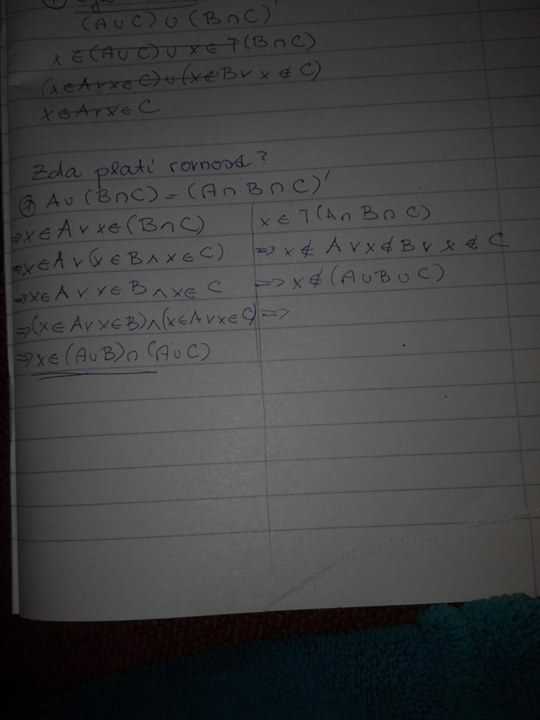 (A∪C)∪(B∩C)'
x∈(A∪C)∪x∈⌉(B∩C)
(x∈A∨x∈C)∪(x∉B∨x∉C)
x∈A∨x∈C
Zda platí rovnost?
② A∪(B∩C)=(A∩B∩C)'
⇒x∈A∨x∈(B∩C)
⇒x∈A∨(x∈B∧x∈C)
⇒x∈A∨x∈B∧x∈C
⇒(x∈A∨x∈B)∧(x∈A∨x∈C)
⇒x∈(A∪B)∩(A∪C)
x∈⌉(A∩B∩C)
⇒x∉A∨x∉B∨x∉C
⇒x∉(A∪B∪C)
⇒